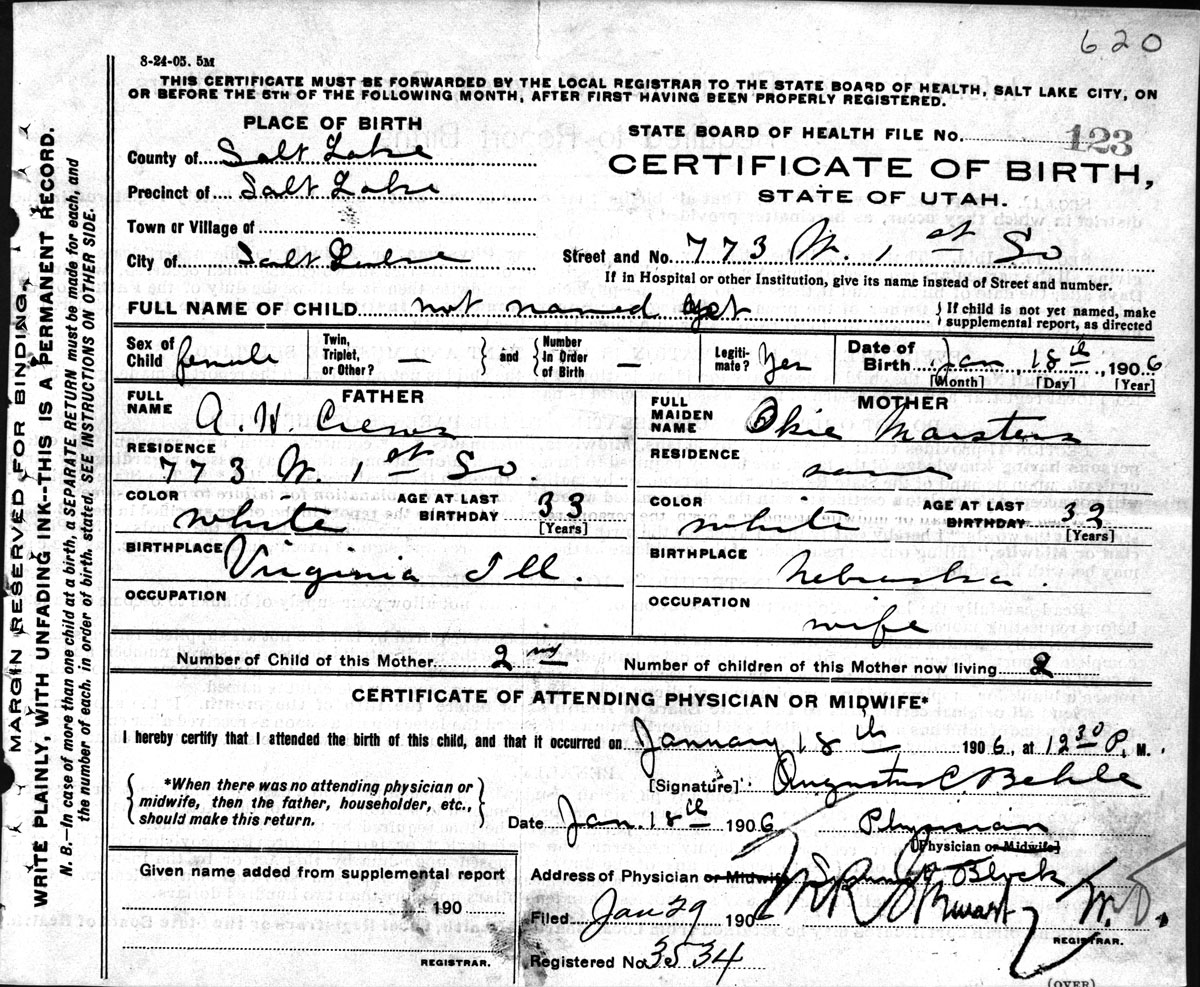 620
8-24-05. 5M
THIS CERTIFICATE MUST BE FORWARDED BY THE LOCAL REGISTRAR TO THE STATE BOARD OF HEALTH, SALT LAKE CITY, ON
OR BEFORE THE 5TH OF THE FOLLOWING MONTH, AFTER FIRST HAVING BEEN PROPERLY REGISTERED.
PLACE OF BIRTH
STATE BOARD OF HEALTH FILE NO. 123
County of Salt Lake
CERTIFICATE OF BIRTH,
Precinct of Salt Lake
STATE OF UTAH.
Town or Village of
City of Salt Lake
Street and No. 773 W. 1st So
If in Hospital or other Institution, give its name instead of Street and number.
FULL NAME OF CHILD not named yet {If child is not yet named, make
supplemental report, as directed
Sex of Child female Twin, Triplet, or Other? } and { Number In Order of Birth — Legiti-mate? Yes Date of Birth Jan, 18th, 1906
[Month] [Day] [Year]
FATHER
MOTHER
FULL NAME A. H. Crews
FULL MAIDEN NAME Okie Marsters
RESIDENCE 773 W. 1st So.
RESIDENCE same
COLOR white AGE AT LAST BIRTHDAY 33 [Years]
COLOR white AGE AT LAST BIRTHDAY 33 [Years]
BIRTHPLACE Virginia Ill.
BIRTHPLACE Nebraska.
OCCUPATION
OCCUPATION wife
Number of Child of this Mother 2nd
Number of children of this Mother now living 2
CERTIFICATE OF ATTENDING PHYSICIAN OR MIDWIFE*
I hereby certify that I attended the birth of this child, and that it occurred on January 18th 1906, at 12 30 P. M.
*When there was no attending physician or
midwife, then the father, householder, etc.,
should make this return.
[Signature] Augustus C. Behle
Date Jan. 18th 1906 Physician
[Physician or Midwife]
Given name added from supplemental report
190
REGISTRAR.
Address of Physician or Midwife Block
Filed Jan 29 1906 M.D.
REGISTRAR.
Registered No. 3534
(OVER)
MARGIN RESERVED FOR BINDING
WRITE PLAINLY, WITH UNFADING INK--THIS IS A PERMANENT RECORD.
N. B.—In case of more than one child at a birth, a SEPARATE RETURN must be made for each, and
the number of each, in order of birth, stated. SEE INSTRUCTIONS ON OTHER SIDE.